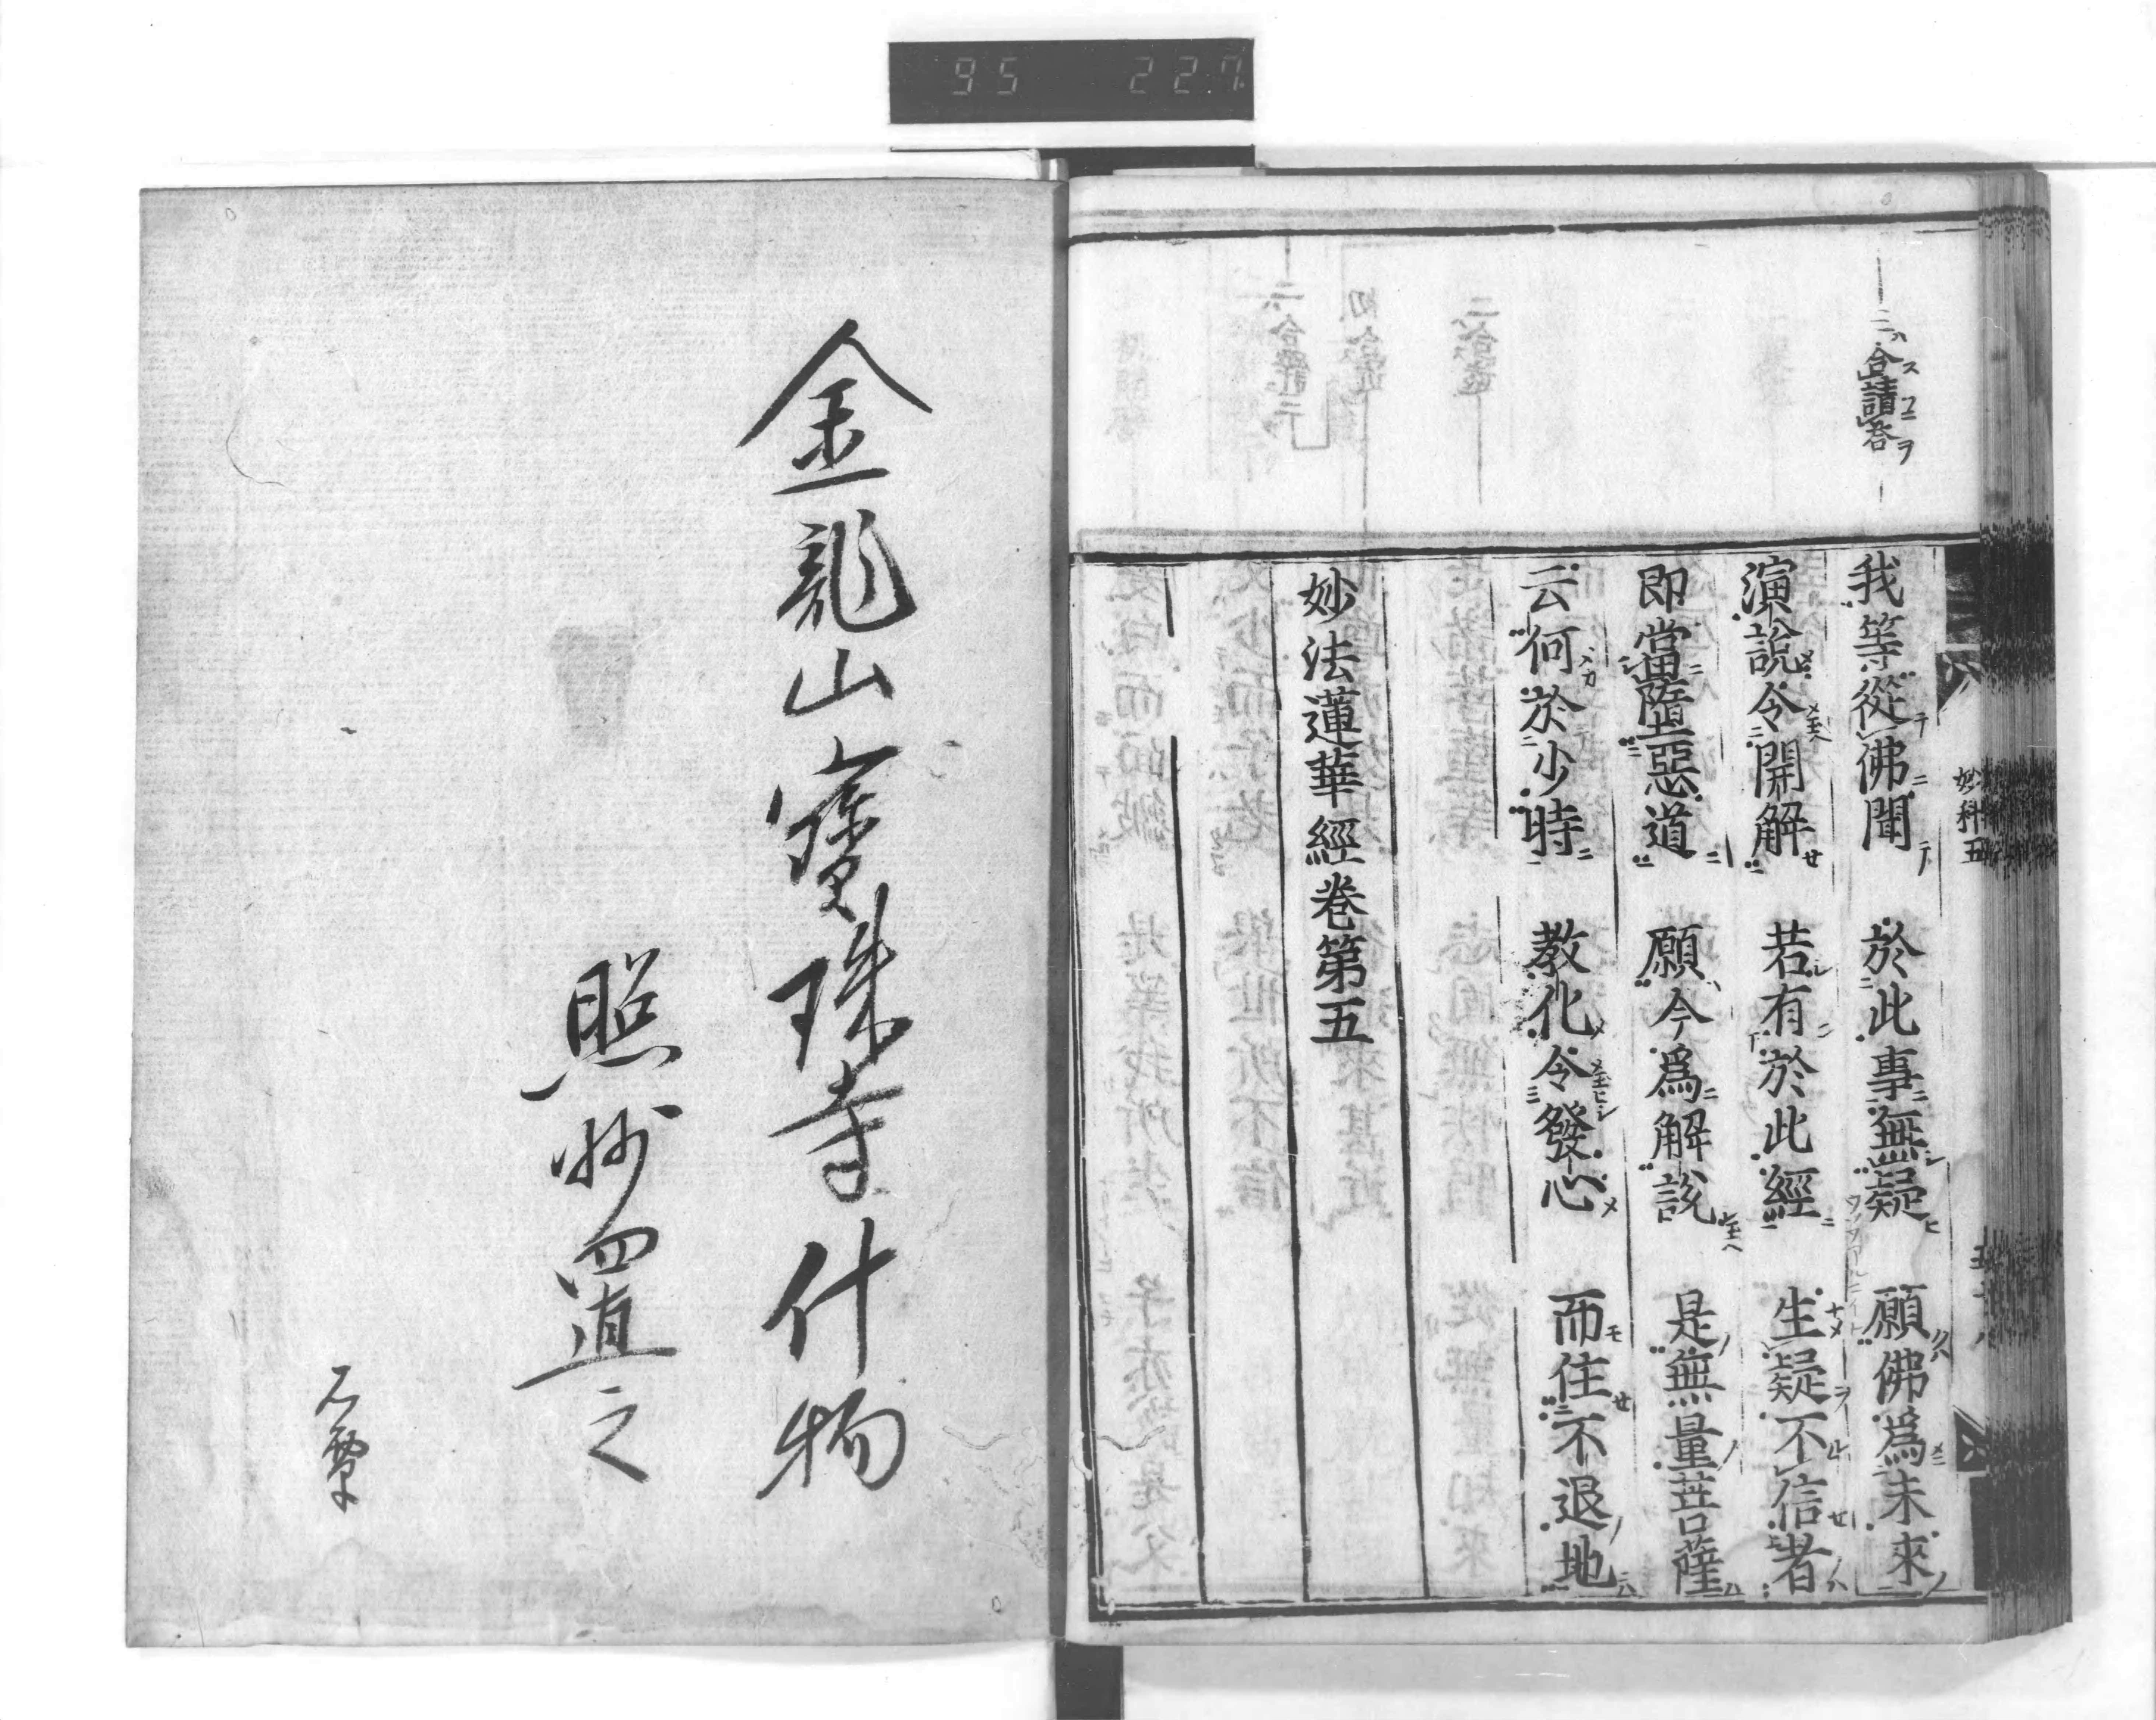 95 227
二合請答
我等從佛聞 於此事無疑 願佛爲未來
演說令開解 若有於此經 生疑不信者
即當墮惡道 願今爲解說 是無量菩薩
云何於少時 教化令發心 而住不退地
妙法蓮華經卷第五
妙科五
金龍山寶珠寺什物
照妙置之